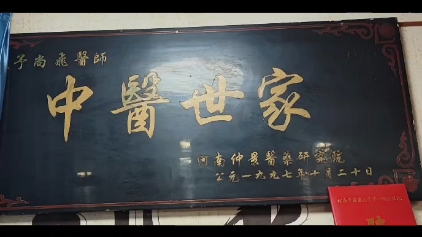 予尚飛醫師
中醫世家
河南仲景醫藥研究院
公元一九九七年十月二十日